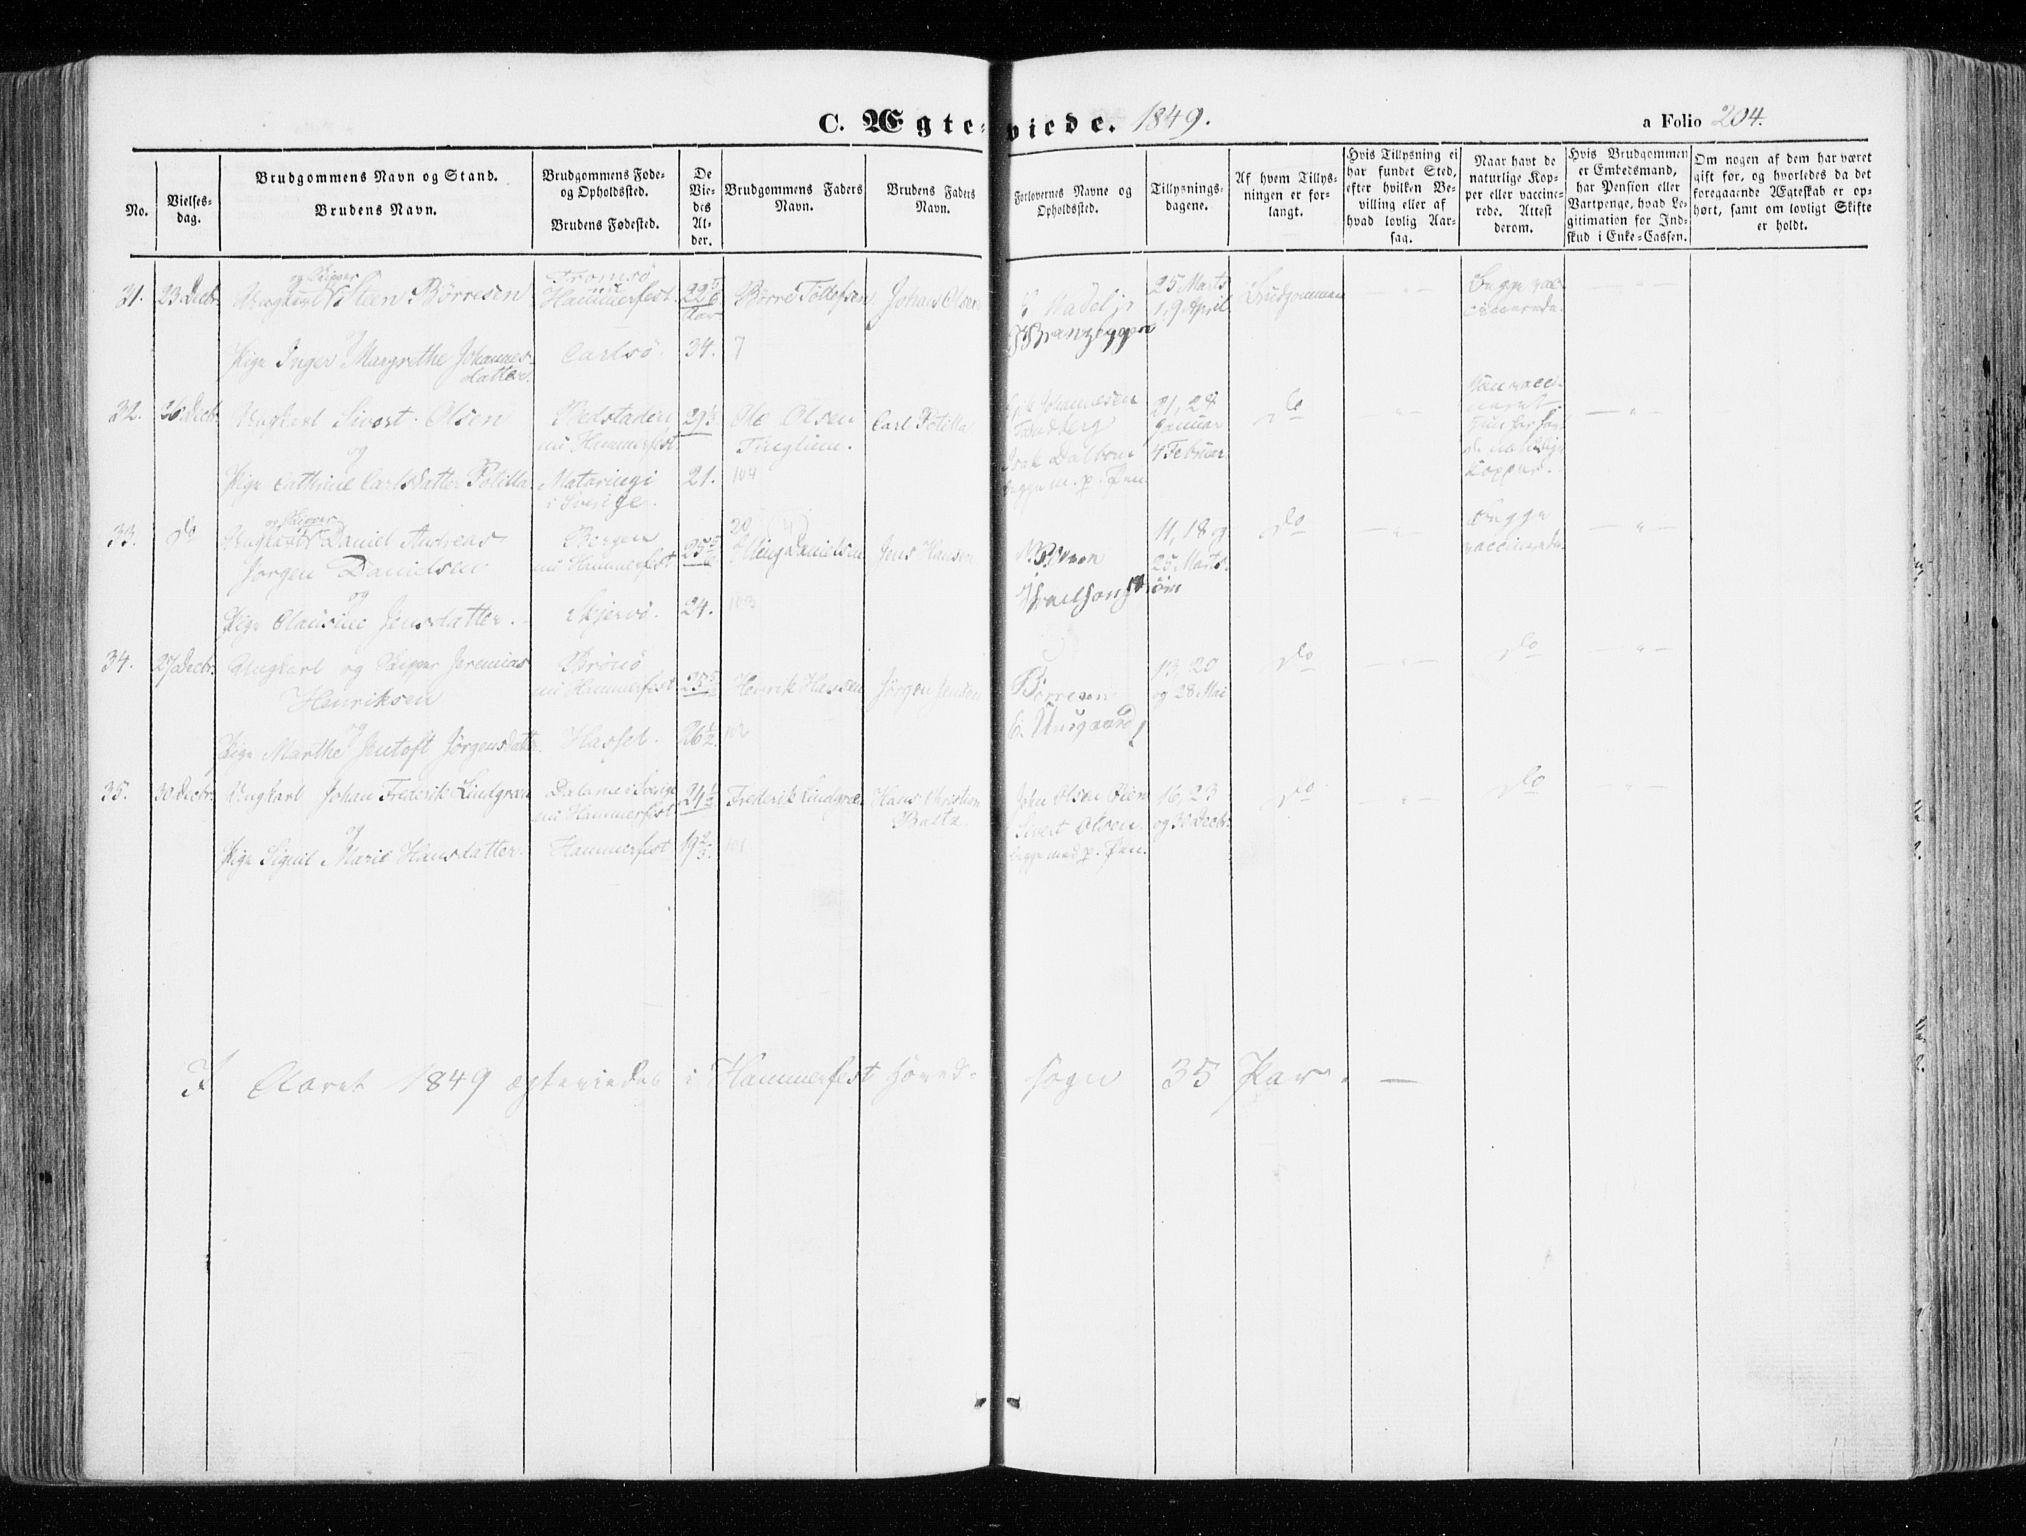 C. Ægteviede. 1849.
a Folio 204.
No.
Vielses-
dag.
Brudgommens Navn og Stand.
Brudens Navn.
Brudgommens Føde-
og Opholdssted.
Brudens Fødested.
De
Vie-
des
Al-
der.
Brudgommens Faders
Navn.
Brudens Faders
Navn.
Forlovernes Navne og
Opholdssted.
Tillysnings-
dagene.
Af hvem Tillys-
ningen er for-
langt.
Hvis Tillysning ei
har fundet Sted,
efter hvilken Be-
villing eller af
hvad lovlig Aar-
sag.
Naar havt de
naturlige Kop-
per eller vaccine-
rede. Attest
derom.
Hvis Brudgommen
er Embedsmand,
har Pension eller
Vartpenge, hvad Le-
gitimation for Ind-
skud i Enke-Cassen.
Om nogen af dem har været
gift før, og hvorledes da det
foregaaende Ægteskab er op-
hørt, samt om lovligt Skifte
er holdt.
31.
23 Decbr.
og Skipper
Ungkarl Steen Børresen
og
Pige Inger Margrethe Johannes-
datter.
Tromsø
Hammerfest.
Carlsø.
34.
7
Børre Tollefsen
Johans Olsen
25 Marts
1, 9 April
Brudgommen
Begge vac-
cinerede.
32.
26 Decbr.
Ungkarl Sivert Olsen
og
Pige Cathrine Carlsdatter Fotilla
nu Hammerfest.
Mataringi
i Sverige.
21.
Ole Olsen
104
Carl Fotilla
Johannesen
begge m. p. Pen
21, 28
Januar
4 Februar
do
Kopper.
33.
do
og Skipper
Ungkarl Daniel Andreas
Jørgen Danielsen
og
Pige Olausine Jensdatter.
Bergen
nu Hammerfest
Skjervø.
24.
20
103
Danielsen
Jens Hansen
11, 18 og
25 Marts.
do
begge
vaccinerede.
34.
27 Decbr.
Ungkarl og Skipper Jeremias
Henriksen
og
Pige Marthe Jentoft Jørgensdatter
Brønø
nu Hammerfest
Hassel.
26½
102
Henrik Hansen
Jørgen Jensen
Børresen
13, 20
og 28 Mai
do
do
35.
30 Decbr.
Ungkarl Johan Frederik Lindgren
og
Pige Signil Marie Hansdatter.
Dalarne i Sverige
nu Hammerfest
Hammerfest
19⅔.
101
Frederik Lindgren
Hans Christian
Baltz.
John Olsen Öien
Sivert Olsen.
begge med p. Pen.
16, 23
og 30 Decbr.
do
do
I Aaret 1849 ægteviedes i Hammerfest Hoved-
sogn 35 Par. —